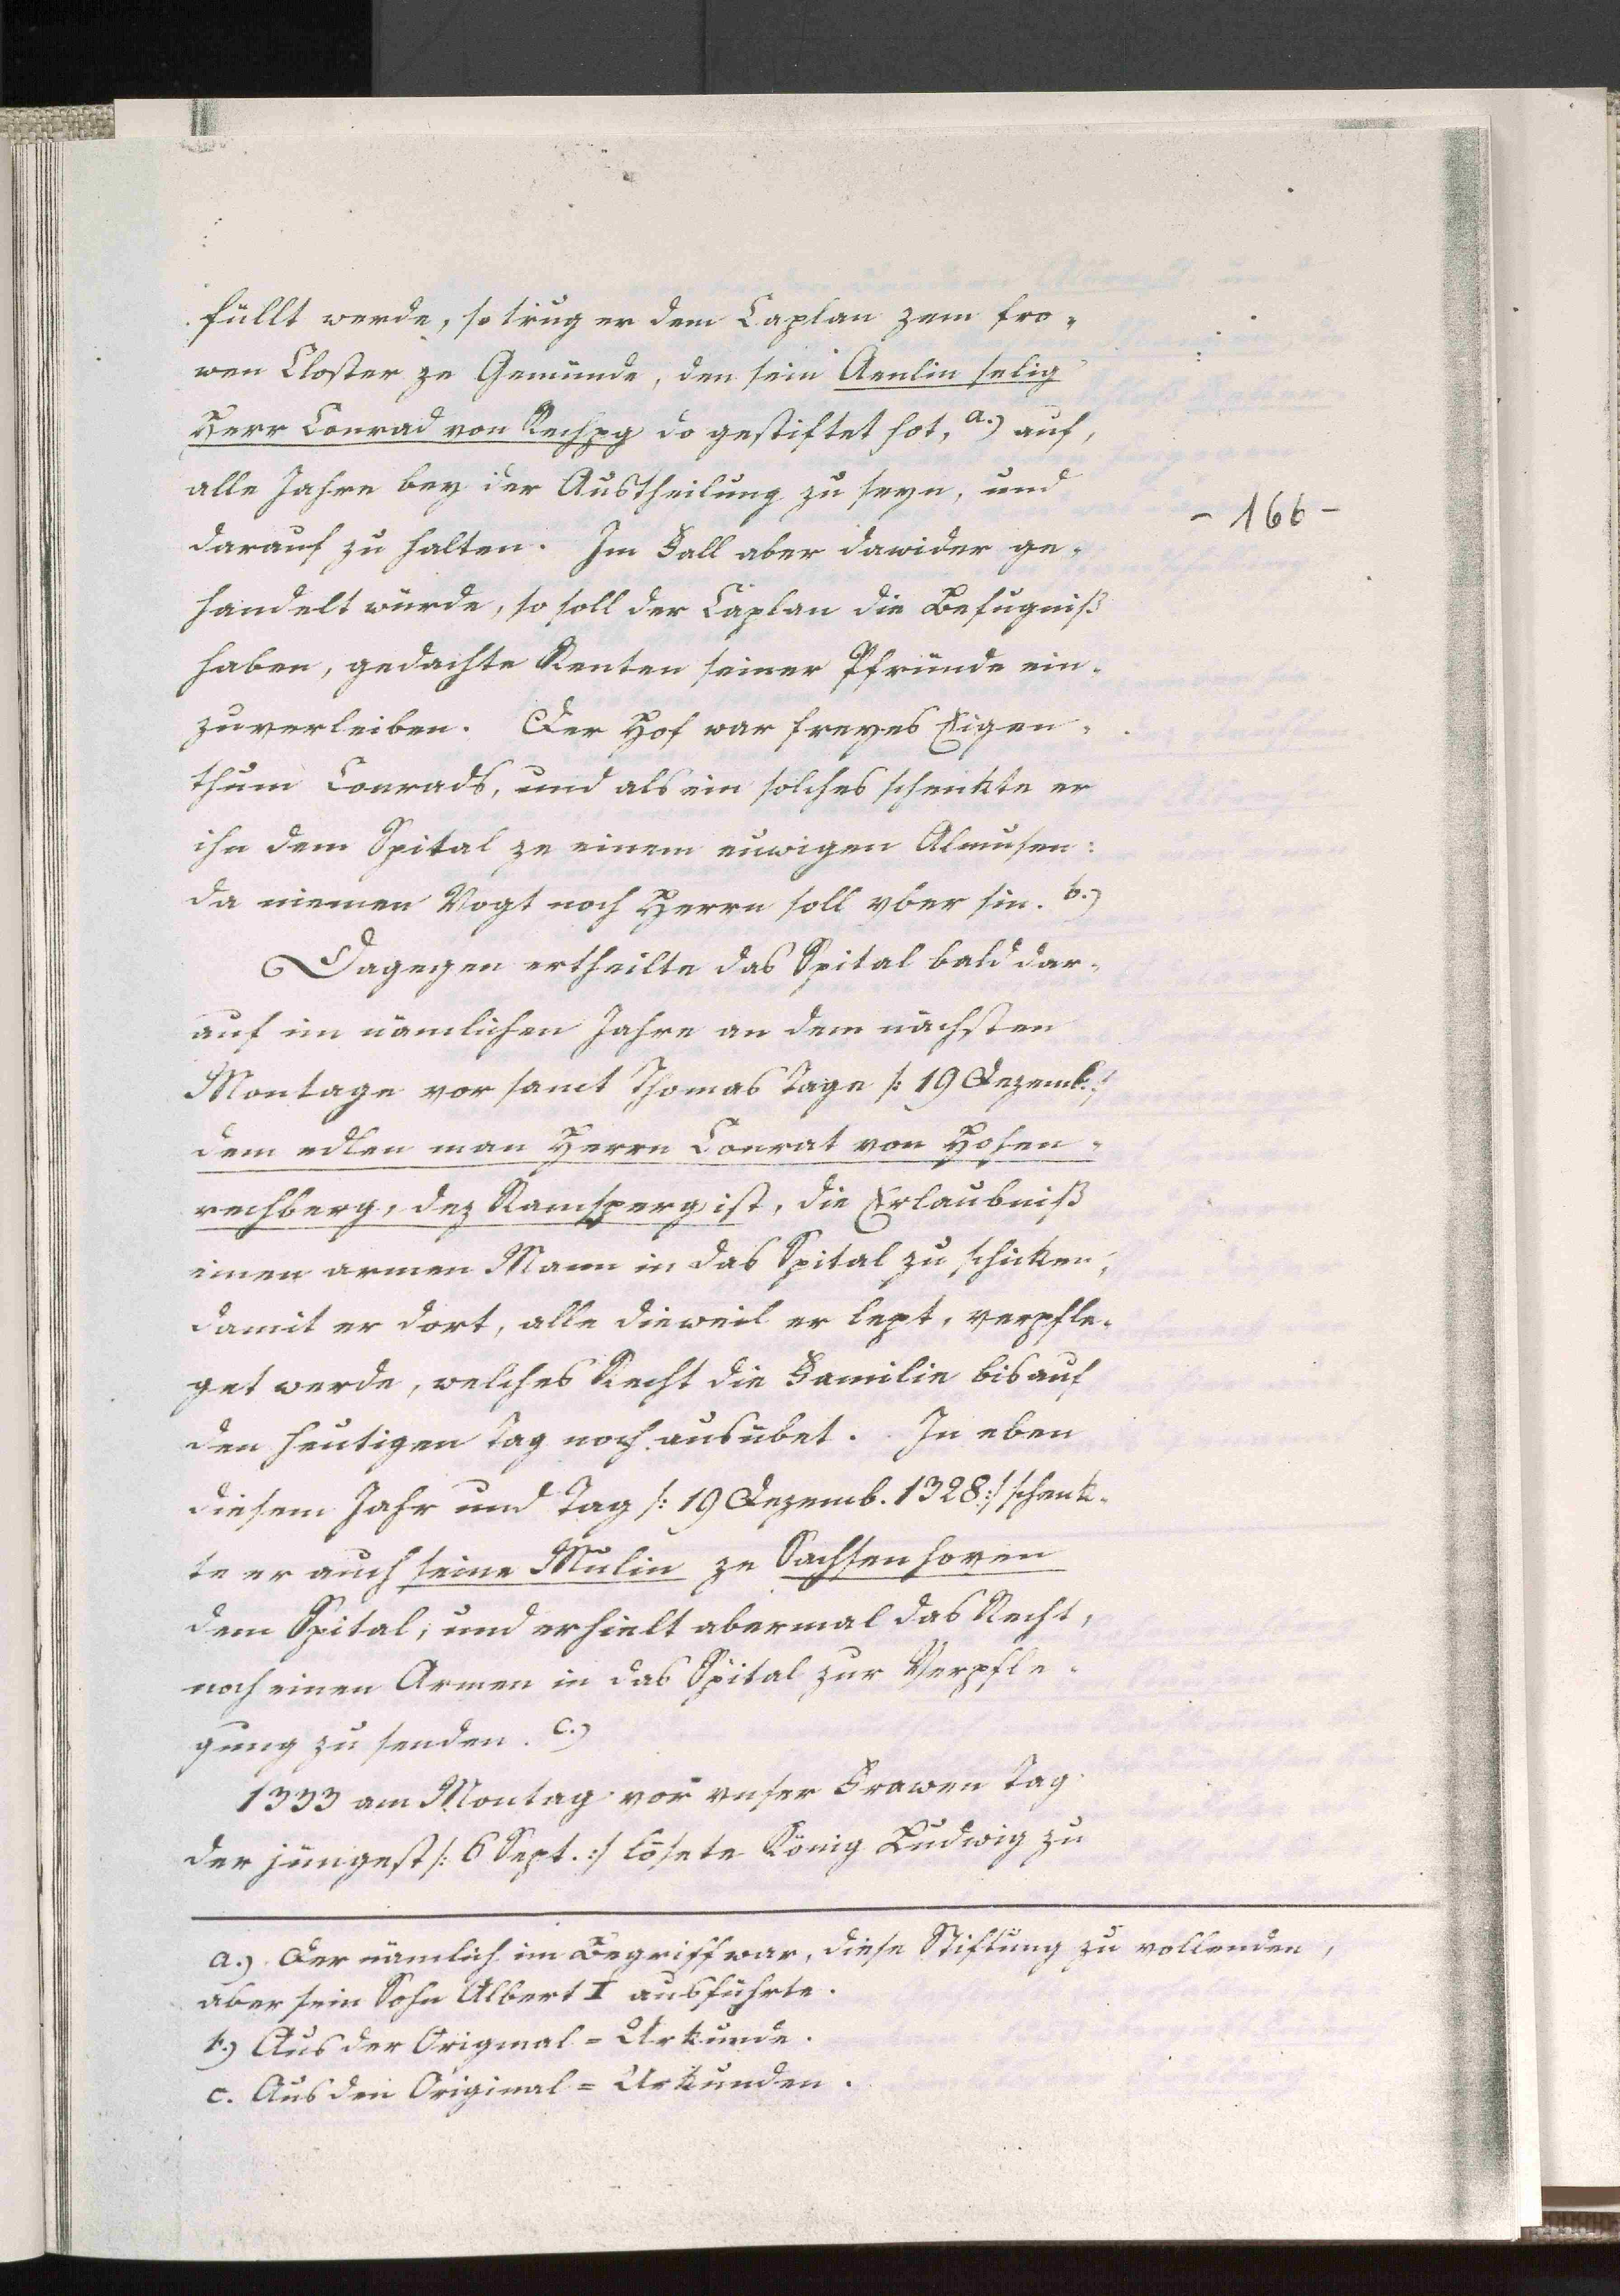 füllt werde, so trug er dem Caplan zem fro-
wen Closter ze Gemünde, den sein Aenlin selig
Herr Conrad von Rechpg do gestiftet hot, a.) auf,
alle Jahre bey der Austheilung zu seyn, und
- 166 -
darauf zu halten. Im Fall aber dawider ge-
handelt würde, so soll der Caplan die Befugniß
haben, gedachte Renten seiner Pfründe ein-
zuverleiben. Der Hof war freyes Eigen-
thum Conrads, und als ein solches schenkte er
ihn dem Spital ze einem euwigen Almusen:
da niemen Vogt noch Herrn soll vber sin. b.)
Dagegen ertheilte das Spital bald dar-
auf im nämlichen Jahre an dem nächsten
Montage vor sanct Thomas Tage /: 19 Dezemb. :/
dem edlen man Herrn Conrat von Hohen-
rechberg, dez Ramsperg ist, die Erlaubniß
einen armen Mann in das Spital zu schicken,
damit er dort, alle dieweil er lept, verpfle-
get werde, welches Recht die Familie bis auf
den heutigen Tag noch ausübet. In eben
diesem Jahr und Tag /: 19 Dezemb. 1328 :/ schenk-
te er auch seine Mulin ze Sachsenhoven
dem Spital, und erhielt abermal das Recht,
noch einen Armen in das Spital zur Verpfle-
gung zu senden. c.)
1333 am Montag vor vnser Frawen Tag
der jüngest /: 6 Sept. :/ lösete König Ludwig zu
a.) Der nämlich im Begriff war, diese Stiftung zu vollenden,
aber sein Sohn Albert I ausführte.
b.) Aus der Original=Urkunde.
c. Aus den Original=Urkunden.